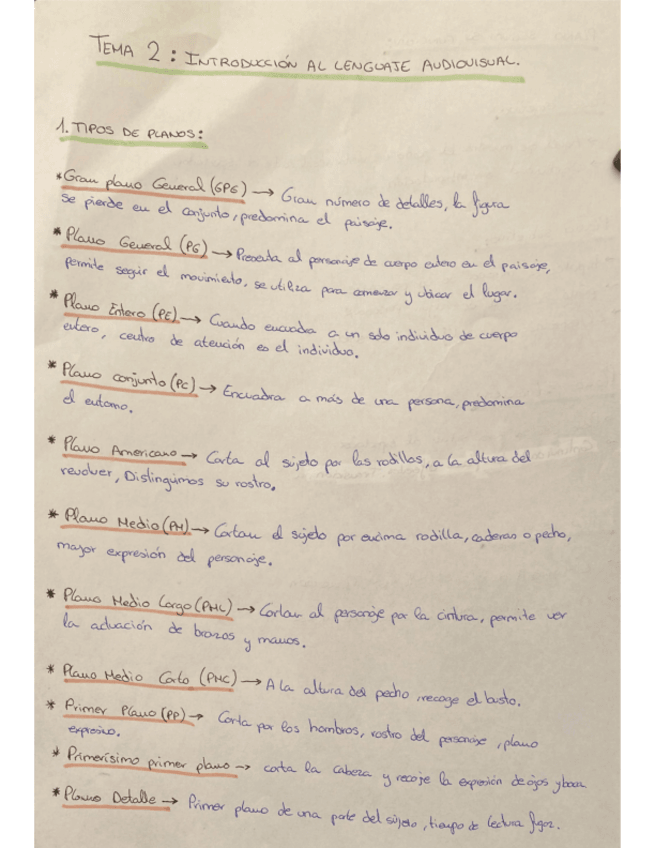 TEMA 2: INTRODUCCIÓN AL LENGUAJE AUDIOVISUAL.
1. TIPOS DE PLANOS:
* Gran plano General (GPG) → Gran número de detalles, la figura
se pierde en el conjunto, predomina el paisaje.
* Plano General (PG) → Presenta al personaje de cuerpo entero en el paisaje,
permite seguir el movimiento, se utiliza para comenzar y ubicar el lugar.
* Plano Entero (PE) → Cuando encuadra a un solo individuo de cuerpo
entero, centro de atención es el individuo.
* Plano conjunto (PC) → Encuadra a más de una persona, predomina
el entorno.
* Plano Americano → Corta al sujeto por las rodillas, a la altura del
revolver, Distinguimos su rostro.
* Plano Medio (PM) → Cortan el sujeto por encima rodilla, caderas o pecho,
mayor expresión del personaje.
* Plano Medio Largo (PML) → Cortan al personaje por la cintura, permite ver
la actuación de brazos y manos.
* Plano Medio Corto (PMC) → A la altura del pecho, recoge el busto.
* Primer Plano (PP) → Corta por los hombros, rostro del personaje, plano
expresivo.
* Primerísimo primer plano → corta la cabeza y recoje la expresión de ojos y boca
* Plano Detalle → Primer plano de una parte del sujeto, tiempo de lectura